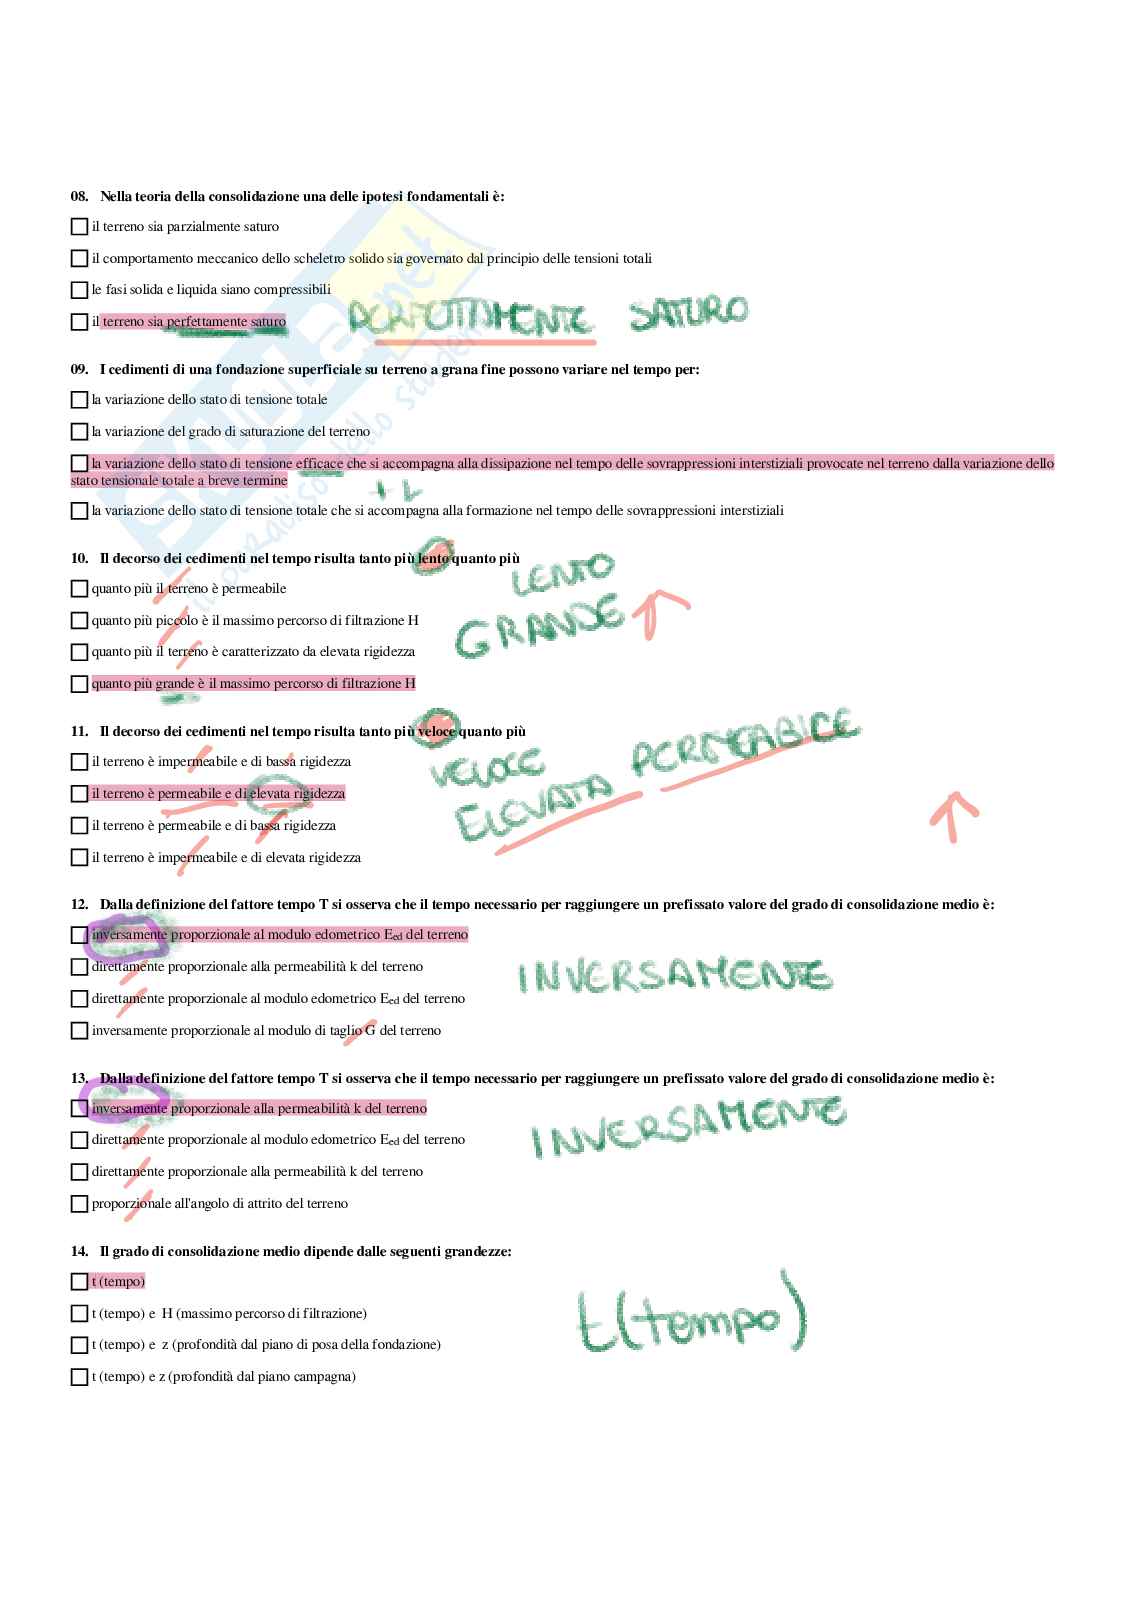 08. Nella teoria della consolidazione una delle ipotesi fondamentali è:
il terreno sia parzialmente saturo
il comportamento meccanico dello scheletro solido sia governato dal principio delle tensioni totali
le fasi solida e liquida siano compressibili
il terreno sia perfettamente saturo PERFETTAMENTE SATURO
09. I cedimenti di una fondazione superficiale su terreno a grana fine possono variare nel tempo per:
la variazione dello stato di tensione totale
la variazione del grado di saturazione del terreno
la variazione dello stato di tensione efficace che si accompagna alla dissipazione nel tempo delle sovrappressioni interstiziali provocate nel terreno dalla variazione dello
stato tensionale totale a breve termine
+ L
la variazione dello stato di tensione totale che si accompagna alla formazione nel tempo delle sovrappressioni interstiziali
10. Il decorso dei cedimenti nel tempo risulta tanto più lento quanto più
LENTO
quanto più il terreno è permeabile
quanto più piccolo è il massimo percorso di filtrazione H
GRANDE
quanto più il terreno è caratterizzato da elevata rigidezza
quanto più grande è il massimo percorso di filtrazione H
11. Il decorso dei cedimenti nel tempo risulta tanto più veloce quanto più
il terreno è impermeabile e di bassa rigidezza
VELOCE
il terreno è permeabile e di elevata rigidezza
ELEVATA PERMEABILE
il terreno è permeabile e di bassa rigidezza
il terreno è impermeabile e di elevata rigidezza
12. Dalla definizione del fattore tempo T si osserva che il tempo necessario per raggiungere un prefissato valore del grado di consolidazione medio è:
inversamente proporzionale al modulo edometrico Eed del terreno
direttamente proporzionale alla permeabilità k del terreno
INVERSAMENTE
direttamente proporzionale al modulo edometrico Eed del terreno
inversamente proporzionale al modulo di taglio G del terreno
13. Dalla definizione del fattore tempo T si osserva che il tempo necessario per raggiungere un prefissato valore del grado di consolidazione medio è:
inversamente proporzionale alla permeabilità k del terreno
INVERSAMENTE
direttamente proporzionale al modulo edometrico Eed del terreno
direttamente proporzionale alla permeabilità k del terreno
proporzionale all'angolo di attrito del terreno
14. Il grado di consolidazione medio dipende dalle seguenti grandezze:
t (tempo)
t (tempo) e H (massimo percorso di filtrazione)
t(tempo)
t (tempo) e z (profondità dal piano di posa della fondazione)
t (tempo) e z (profondità dal piano campagna)
Skuola.net
il paradiso dello studente